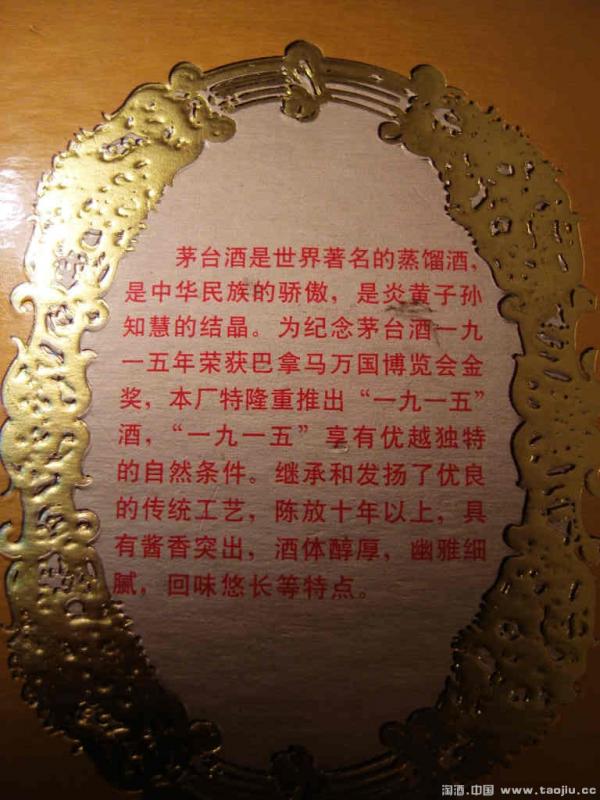 茅台酒是世界著名的蒸馏酒，
是中华民族的骄傲，是炎黄子孙
知慧的结晶。为纪念茅台酒一九
一五年荣获巴拿马万国博览会金
奖，本厂特隆重推出“一九一五”
酒，“一九一五”享有优越独特
的自然条件。继承和发扬了优良
的传统工艺，陈放十年以上，具
有酱香突出，酒体醇厚，幽雅细
腻，回味悠长等特点。
淘酒.中国 www.taojiu.cc